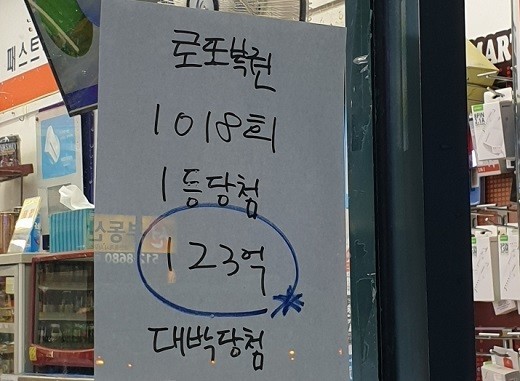 패스트
MAR
로또복권
1018회
1등당첨
123억
대박당첨
부동산
512 8680